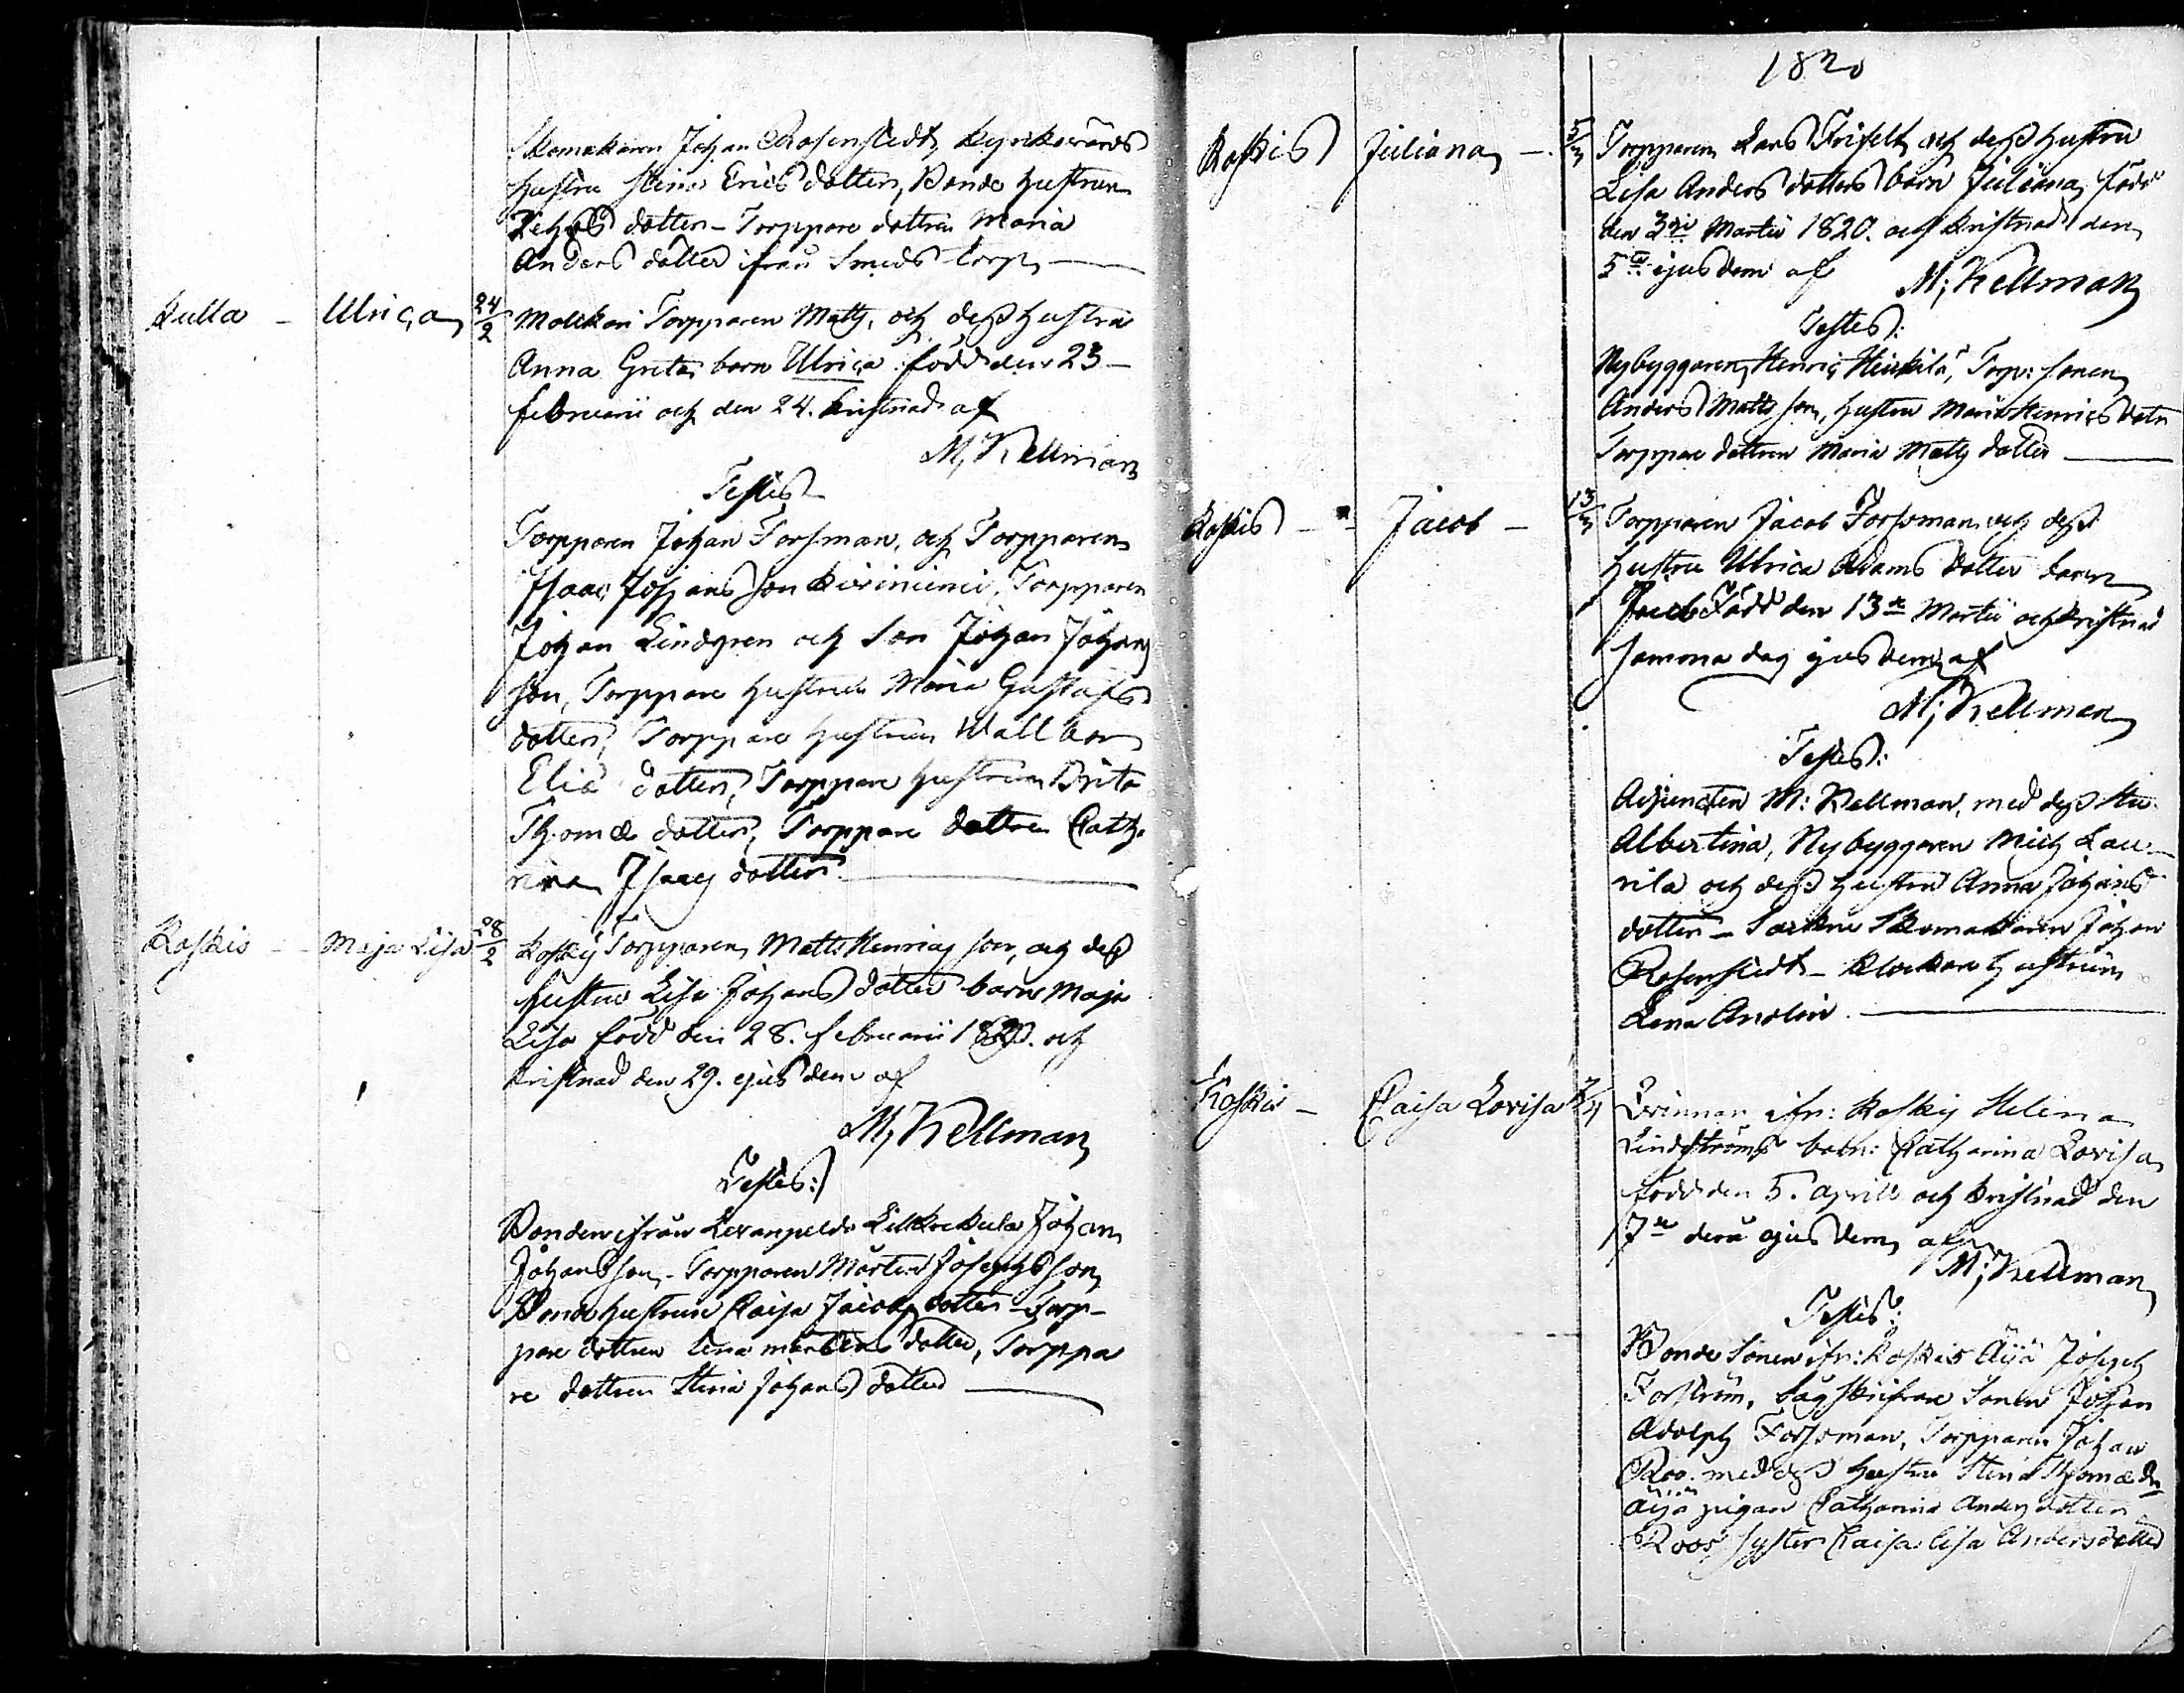 Skomakaren Johan Rosenstedt, Kyrkovärds
hustru Stina Erics dotter, Bonde hustrun
dotter – Torppare dottren Maria
Anders dotter ifrån Smeds torp
Kulla – Ulrica 24/2 Torpparen Matts, och dess hustru
Anna Greta barn Ulrica född den 23
februarii och den 24. kristnad af
M; Kellman
Testes
Torpparen Johan Forsman, och Torpparen
Isaac Johansson Kiviniemi, Torpparen
Johan Lindgren och Son Johan Johans
son, Torppare hustrun Maria Gustafs
dotter, Torppare hustrun Wallbor
Eliæ dotter, Torppare hustrun Brita
Thomæ dotter, Torppare dottren Catha
rina Isacs dotter
Koskis – Maja Lisa 28/2 Koskis Torpparen Matts Henrics son, och dess
hustru Lisa Johans dotter barn Maja
Lisa född den 28. februarii 1820. och
kristnad den 29. ejusdem af
M; Kellman
Testes:
Bonden ifrån Johan
Johansson – Torpparen Mårten Josephsson
Bonde hustrun Caisa Jacobs dotter – Torp-
pare dottren Lena Mårtens dotter, Torppa
re dottren Stina Johans dotter
1820
Koskis Juliana – 5/3 Torpparen Lars Frifelt och dess hustru
Lisa Anders dotters barn Juliana, född
den 3di Martii 1820. och kristnad den
5te ejusdem af M; Kellman
Testes:
Nybyggaren Henric Heikilä, Torp: sonen
Anders Matts son, hustru Maria Henrics dotr
Torppare dottren Maria Matts dotter
Koskis – Jacob – 13/3 Torpparen Jacob Forsman och dess
hustru Ulrica Adams dotter barn
Jacob Född den 13de Martii och kristnad
samma dag ejusdem af
M; Kellman
Testes:
Adjuncten M: Kellman, med dess Hu
Albertina, Nybyggaren Mich Lau-
rila och dess hustru Anna Johans
dotter – Sockne Skomakaren Johan
Rosenstedt – Klockare hustrun
Lena Anolin
Koskis – Caisa Lovisa 7/4 Qvinnan ifr: Koskis Helena
Lindströms barn: Catharina Lovisa
född den 5. aprill och kristnad den
7de derå ejusdem af
M; Kellman
Testes:
Bonde Sonen ifr: Koskis Äijä Joseph
Forström, Sågskrifvare Sonen Johan
Adolph Forsman, Torpparen Johan
Roo. med dess hustru Stina Thomæ dr
Äijä pigan Catharina Anders dotter
Roos syster Caisa Lisa Andersdotter